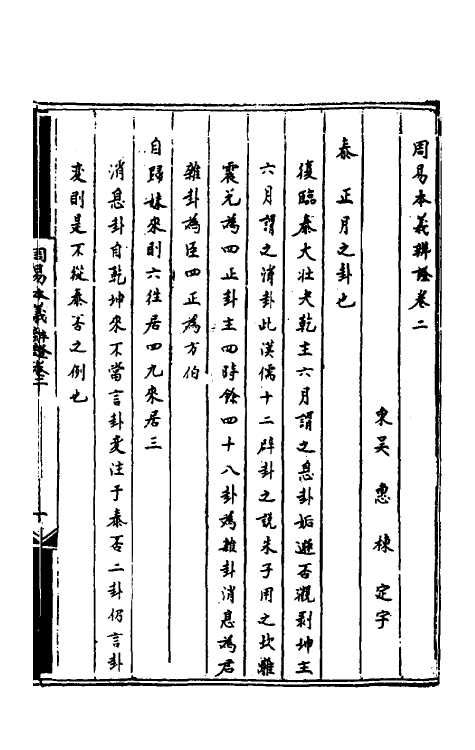 周易本義辨證卷二
東吴 惠棟 定宇
泰 正月之卦也
復臨泰大壯夬乾主六月謂之息卦姤遯否觀剥坤主
六月謂之消卦此漢儒十二辟卦之説朱子用之坎離
震兑為四正卦主四時餘四十八卦為雜卦消息為君
雜卦為臣四正為方伯
自歸妹來則六往居四九來居三
消息卦自乾坤來不當言卦变注于泰否二卦仍言卦
变則是不從泰否之例也
周易本義辨證卷二
一